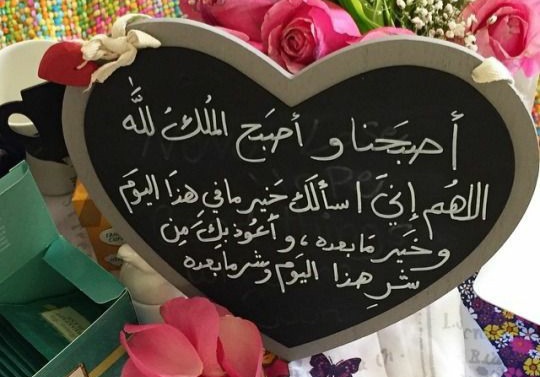 أصبحنا و أصبح الملكُ للَّه
اللهُم إنيَّ اسألكَ خَير ما في هذا اليَوم
و خَير مَا بعده ، و أعُوذ بِكَ مِن
شرِ هذا اليَوم و شر ما بعده